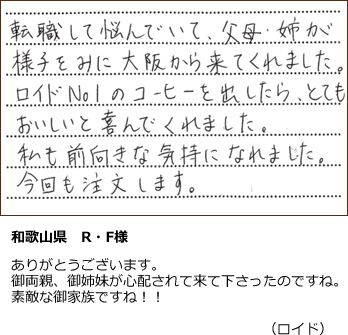 転職して悩んでいて、父母・姉が
様子をみに大阪から来てくれました。
ロイドNo1のコーヒーを出したら、とても
おいしいと喜んでくれました。
私も前向きな気持になれました。
今回も注文します。
和歌山県 R・F様
ありがとうございます。
御両親、御姉妹が心配されて来て下さったのですね。
素敵な御家族ですね！！
（ロイド）